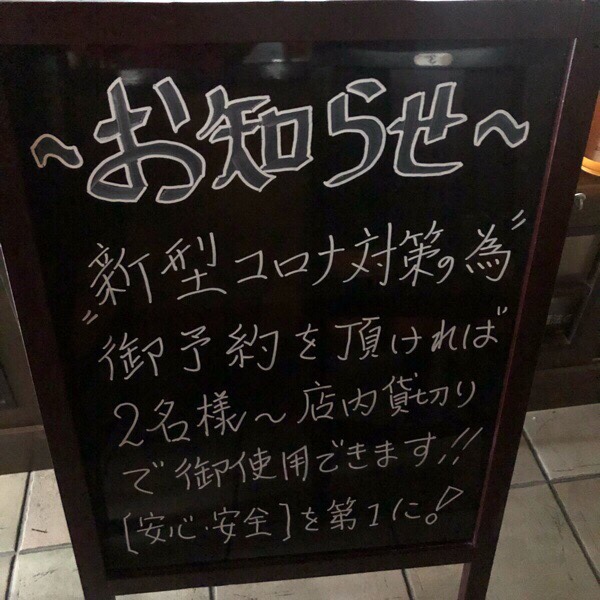 ～お知らせ～
"新型コロナ対策の為"
御予約を頂ければ
2名様～店内貸切り
で御使用できます!!
[安心・安全]を第1に!